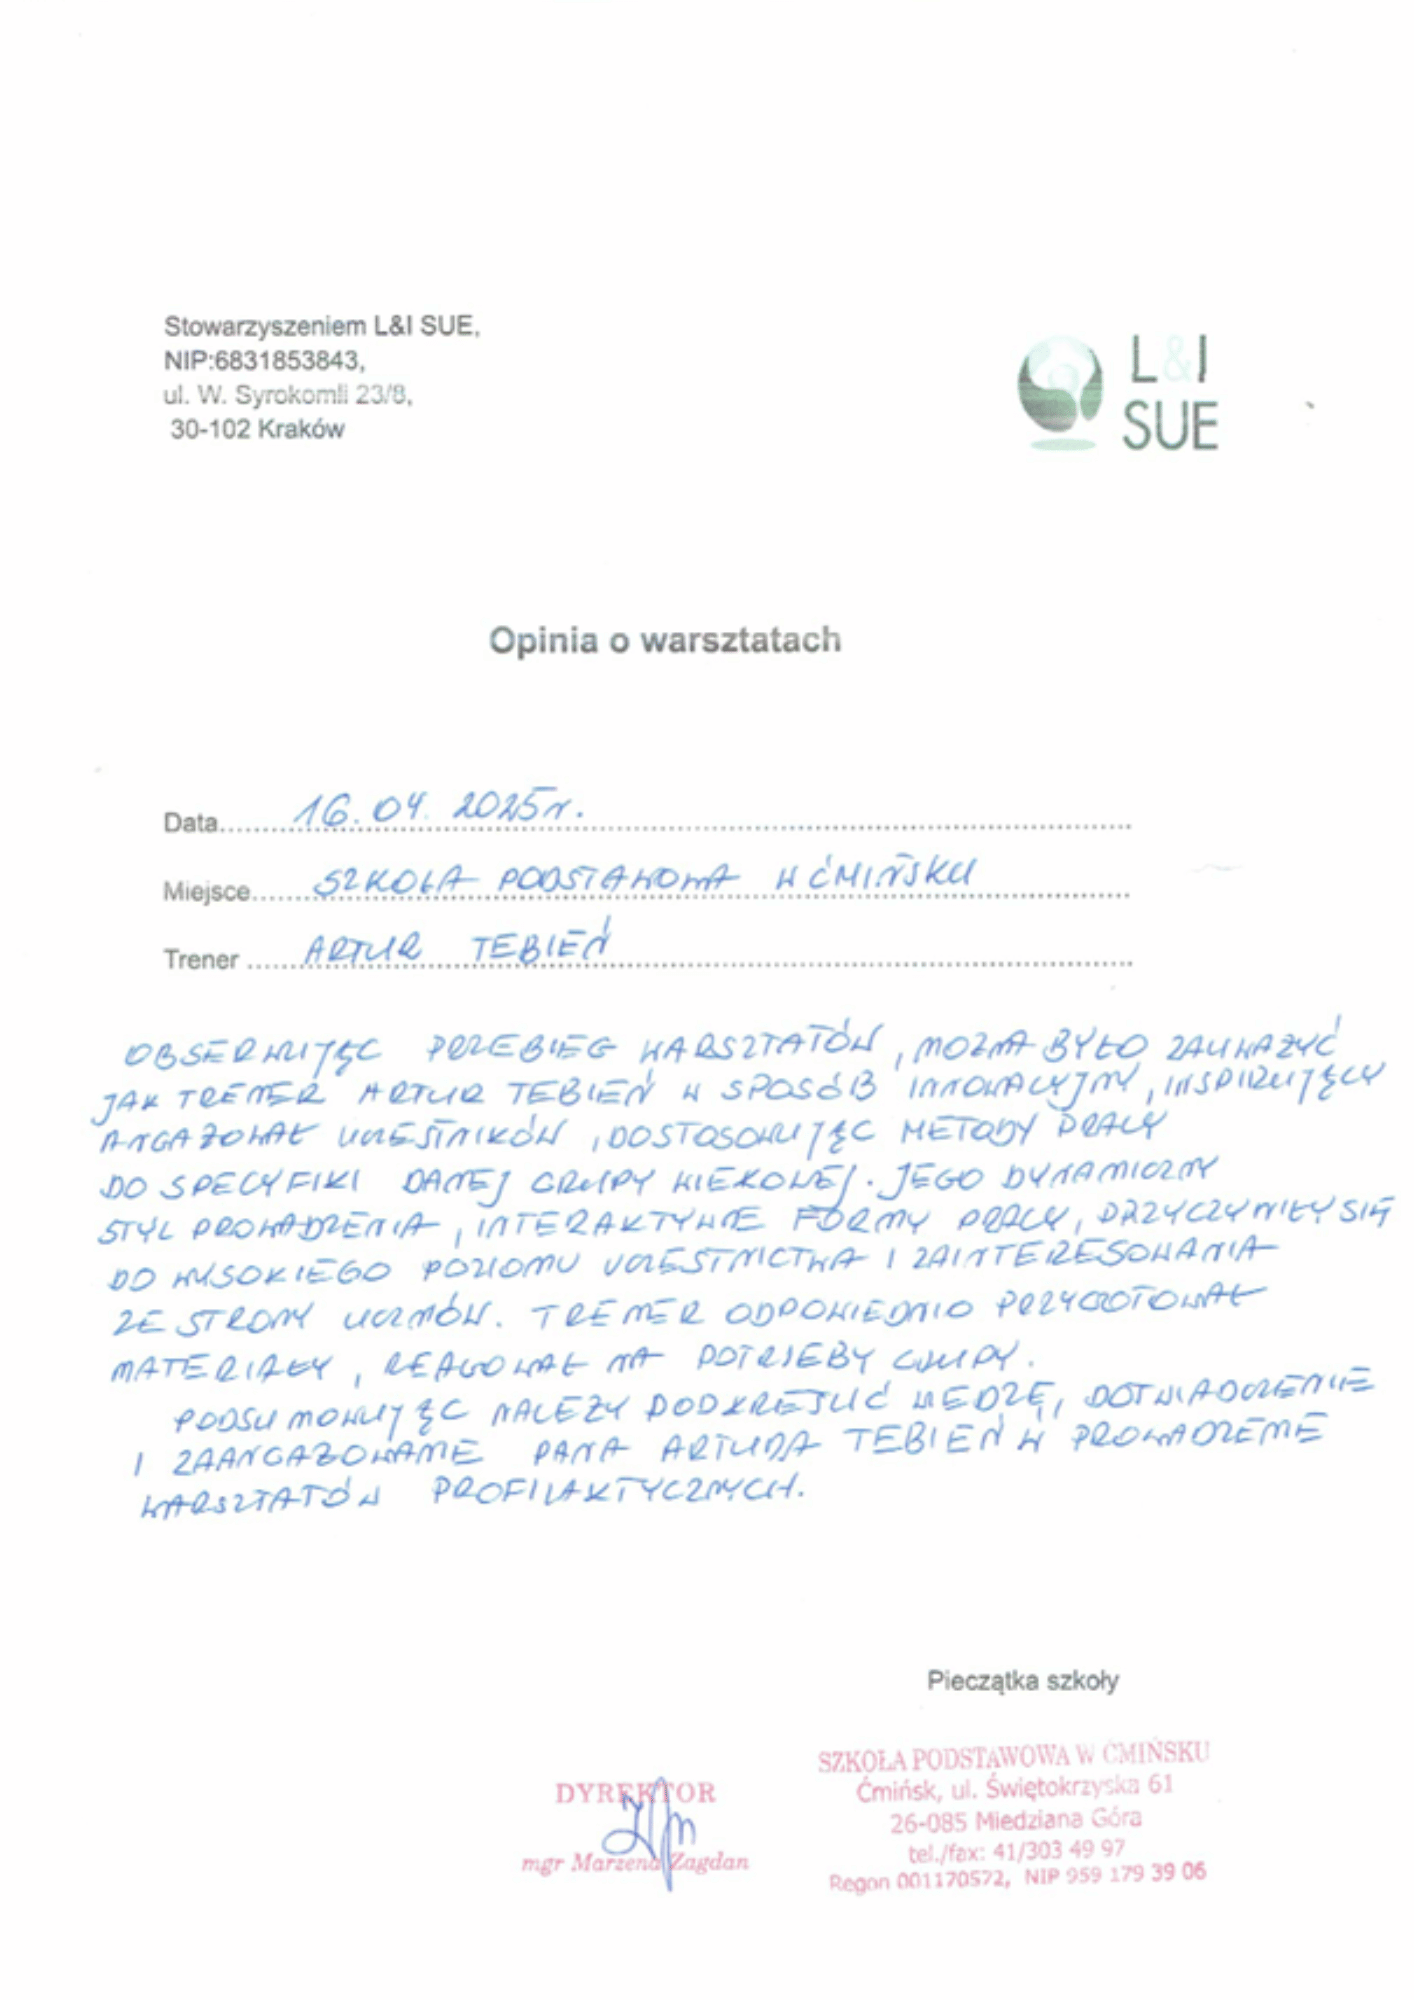 Stowarzyszeniem L&I SUE,
NIP:6831853843,
ul. W. Syrokomli 23/8,
30-102 Kraków
L&I
SUE
Opinia o warsztatach
Data 16.04. 2025r.
Miejsce SZKOŁA PODSTAWOWA W ĆMIŃSKU
Trener ARTUR TEBIEŃ
OBSERWUJĄC PRZEBIEG WARSZTATÓW, MOŻNA BYŁO ZAUWAŻYĆ
JAK TRENER ARTUR TEBIEŃ W SPOSÓB INNOWACYJNY, INSPIRUJĄCY
ANGAŻOWAŁ UCZESTNIKÓW, DOSTOSOWUJĄC METODY PRACY
DO SPECYFIKI DANEJ GRUPY WIEKOWEJ. JEGO DYNAMICZNY
STYL PROWADZENIA, INTERAKTYWNE FORMY PRACY, PRZYCZYNIŁY SIĘ
DO WYSOKIEGO POZIOMU UCZESTNICTWA I ZAINTERESOWANIA
ZE STRONY UCZNIÓW. TRENER ODPOWIEDNIO PRZYGOTOWAŁ
MATERIAŁY, REAGOWAŁ NA POTRZEBY GRUPY.
PODSUMOWUJĄC NALEŻY PODKREŚLIĆ WIEDZĘ, DOŚWIADCZENIE
I ZAANGAŻOWANIE PANA ARTURA TEBIEŃ W PROWADZENIE
WARSZTATÓW PROFILAKTYCZNYCH.
Pieczątka szkoły
SZKOŁA PODSTAWOWA W ĆMIŃSKU
Ćmińsk, ul. Świętokrzyska 61
26-085 Miedziana Góra
tel./fax: 41/303 49 97
Regon 001170572, NIP 959 179 39 06
DYREKTOR
mgr Marzena Zagdan